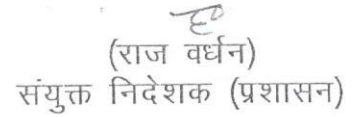 (राज वर्धन)
संयुक्त निदेशक (प्रशासन)